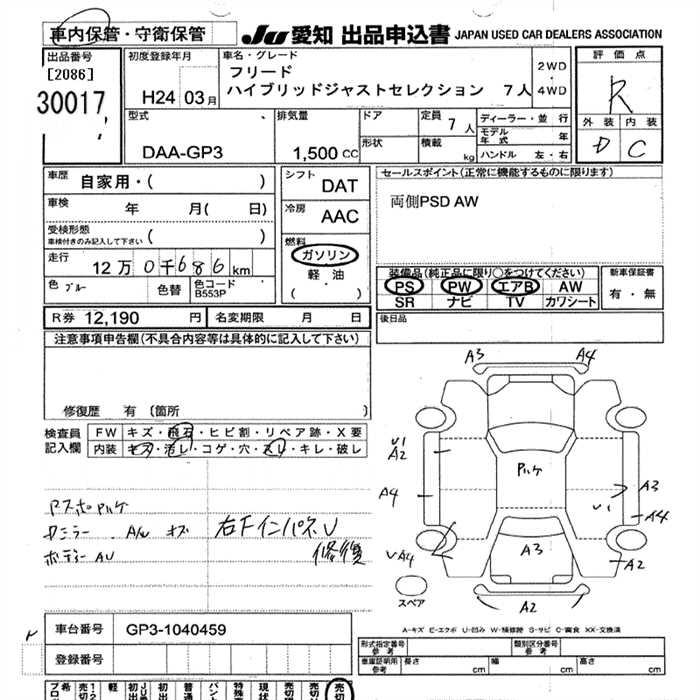 車内保管・守衛保管
JU 愛知 出品申込書 JAPAN USED CAR DEALERS ASSOCIATION
出品番号
[2086]
30017
初度登録年月
H24 03月
車名・グレード
フリード
ハイブリッドジャストセレクション 7人
2WD
4WD
評価点
R
外装 内装
D C
型式
DAA-GP3
排気量
1,500 CC
ドア
形状
定員 7人
積載 kg
ディーラー・並行
モデル年式 年
ハンドル 左・右
車歴 自家用・( )
車検 年 月( 日)
受検形態
車検付きのみ記入して下さい ( )
走行 12万0千686km
色 ブルー 色替 色コード B553P
シフト DAT
冷房 AAC
燃料
ガソリン
軽油
( ・ )
セールスポイント(正常に機能するものに限ります)
両側PSD AW
装備品(純正品に限り○をつけてください)
PS PW エアB AW
SR ナビ TV カワシート
新車保証書
有・無
R券 12,190 円 名変期限 月 日
後日品
注意事項申告欄(不具合内容等は具体的に記入して下さい)
修復歴 有 〔箇所 〕
検査員記入欄
FW キズ・飛石・ヒビ割・リペア跡・X要
内装 キズ・汚レ・コゲ・穴・スレ・キレ・破レ
ボディー AU
右Fインパネ U
修復
A3 A4
U1
A2
A4
A3
U1
A4
A3
A2
A2
スペア
A-キズ E-エクボ U-凹み W-補修跡 S-サビ C-腐食 XX-交換済
車台番号 GP3-1040459
登録番号
形式指定番号 参考
類別区分番号 参考
車庫証明用 参考 長さ cm 幅 cm 高さ cm